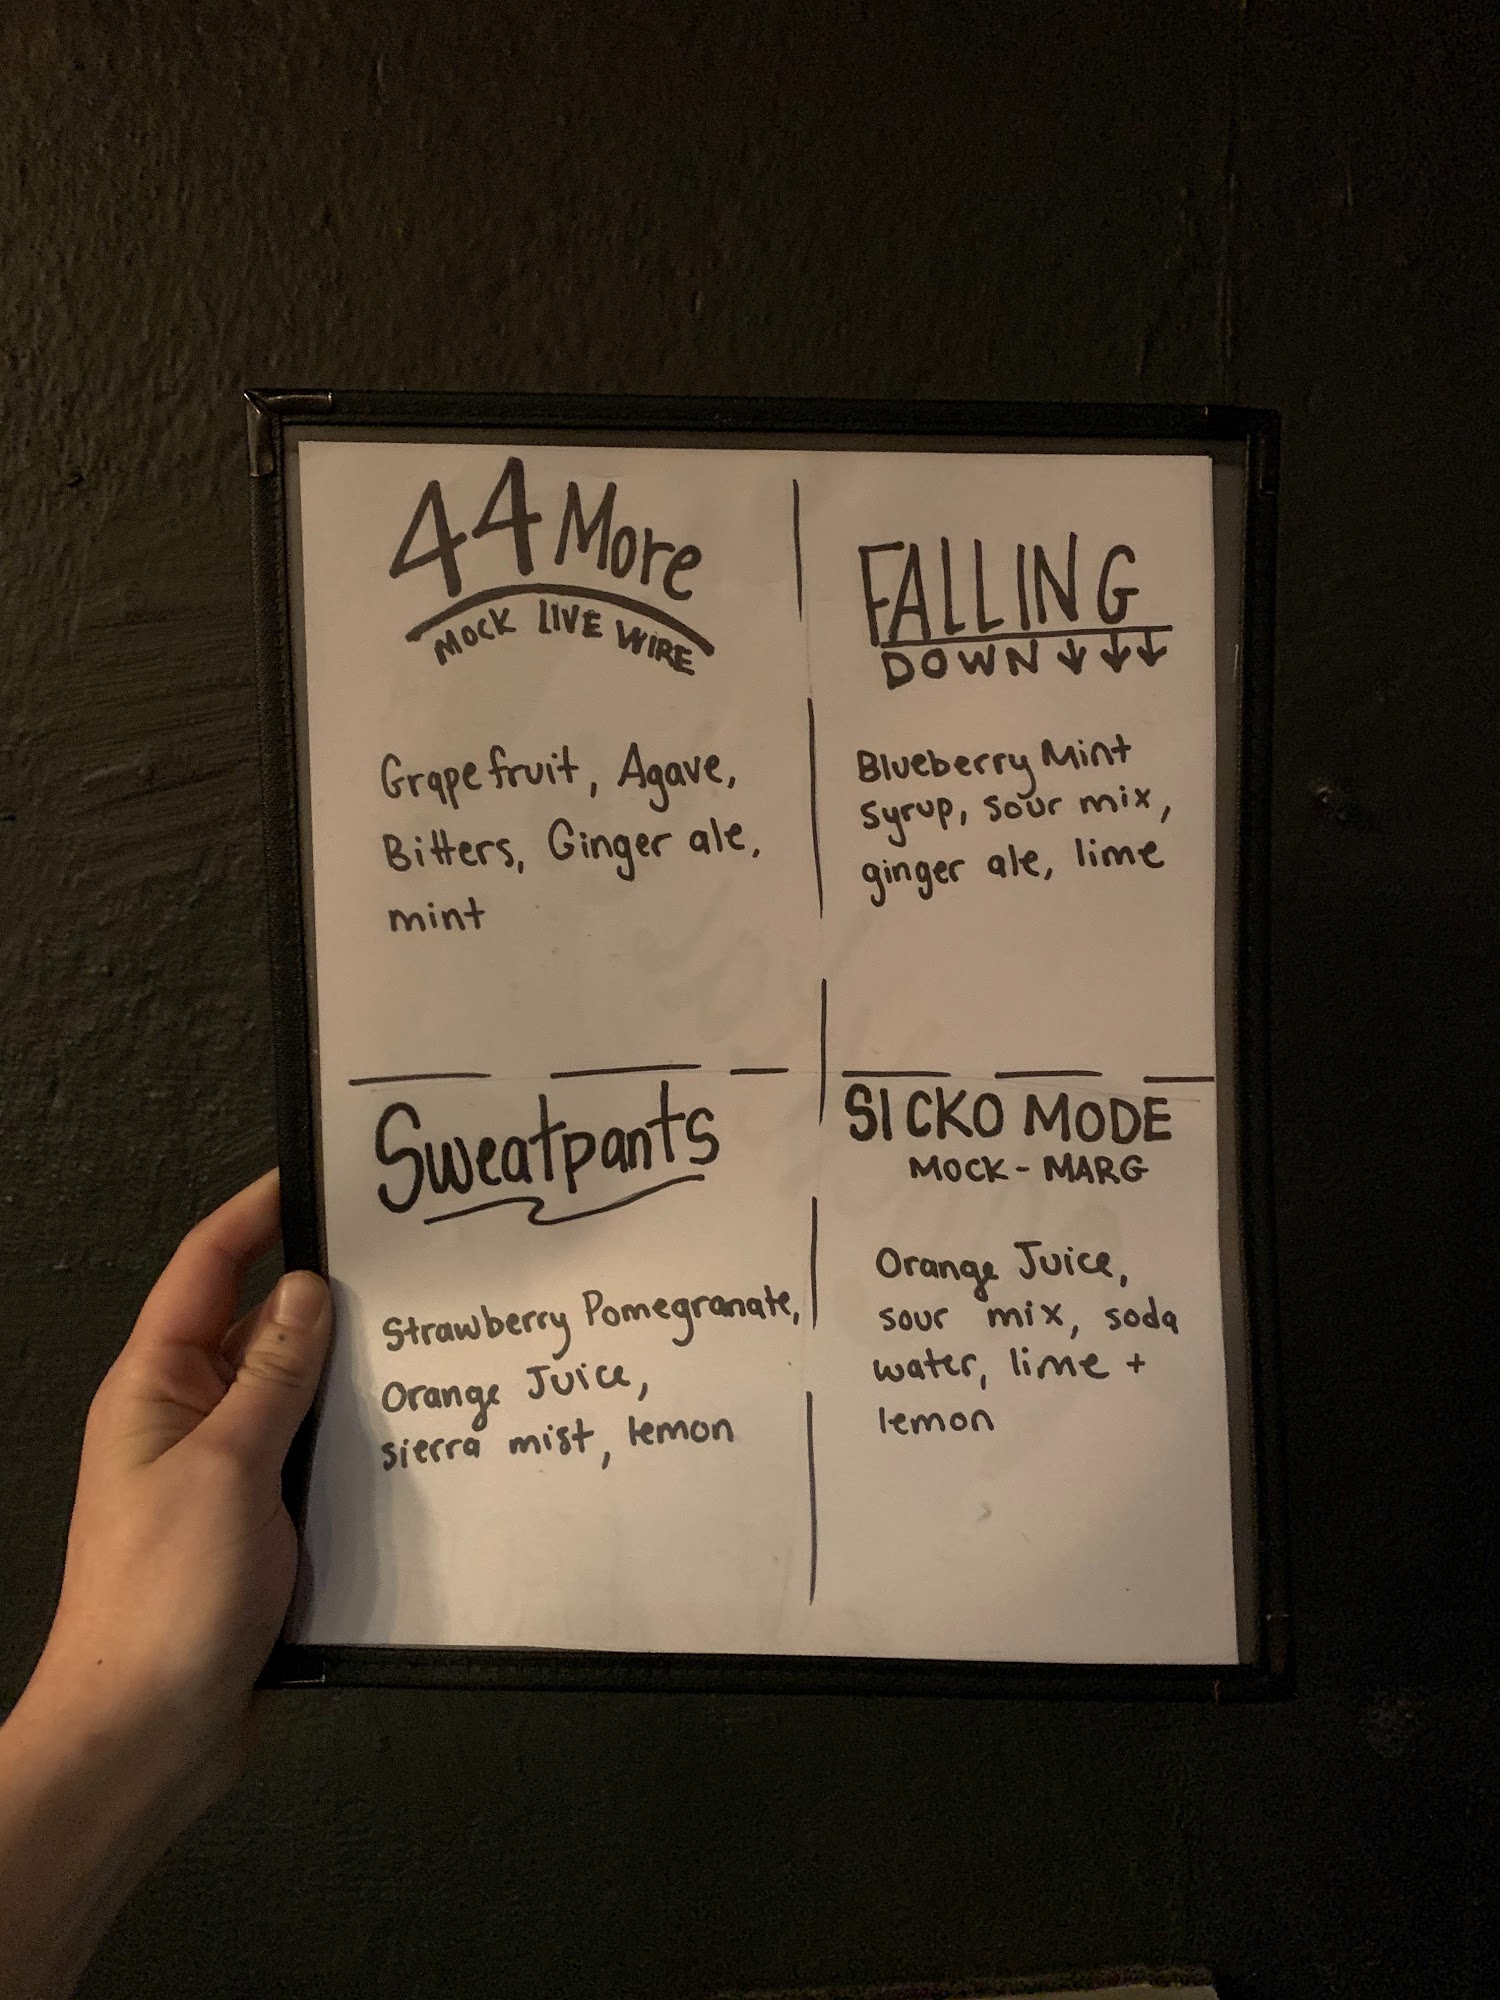 44 More
MOCK LIVE WIRE
Grapefruit, Agave,
Bitters, Ginger ale,
mint
FALLING
DOWN ↓ ↓ ↓
Blueberry Mint
syrup, sour mix,
ginger ale, lime
Sweatpants
Strawberry Pomegranate,
Orange Juice,
sierra mist, lemon
SICKO MODE
MOCK - MARG
Orange Juice,
sour mix, soda
water, lime +
lemon